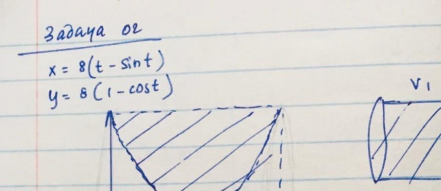 Задача 02
x = 8(t - sint)
y = 8(1 - cost)
V1